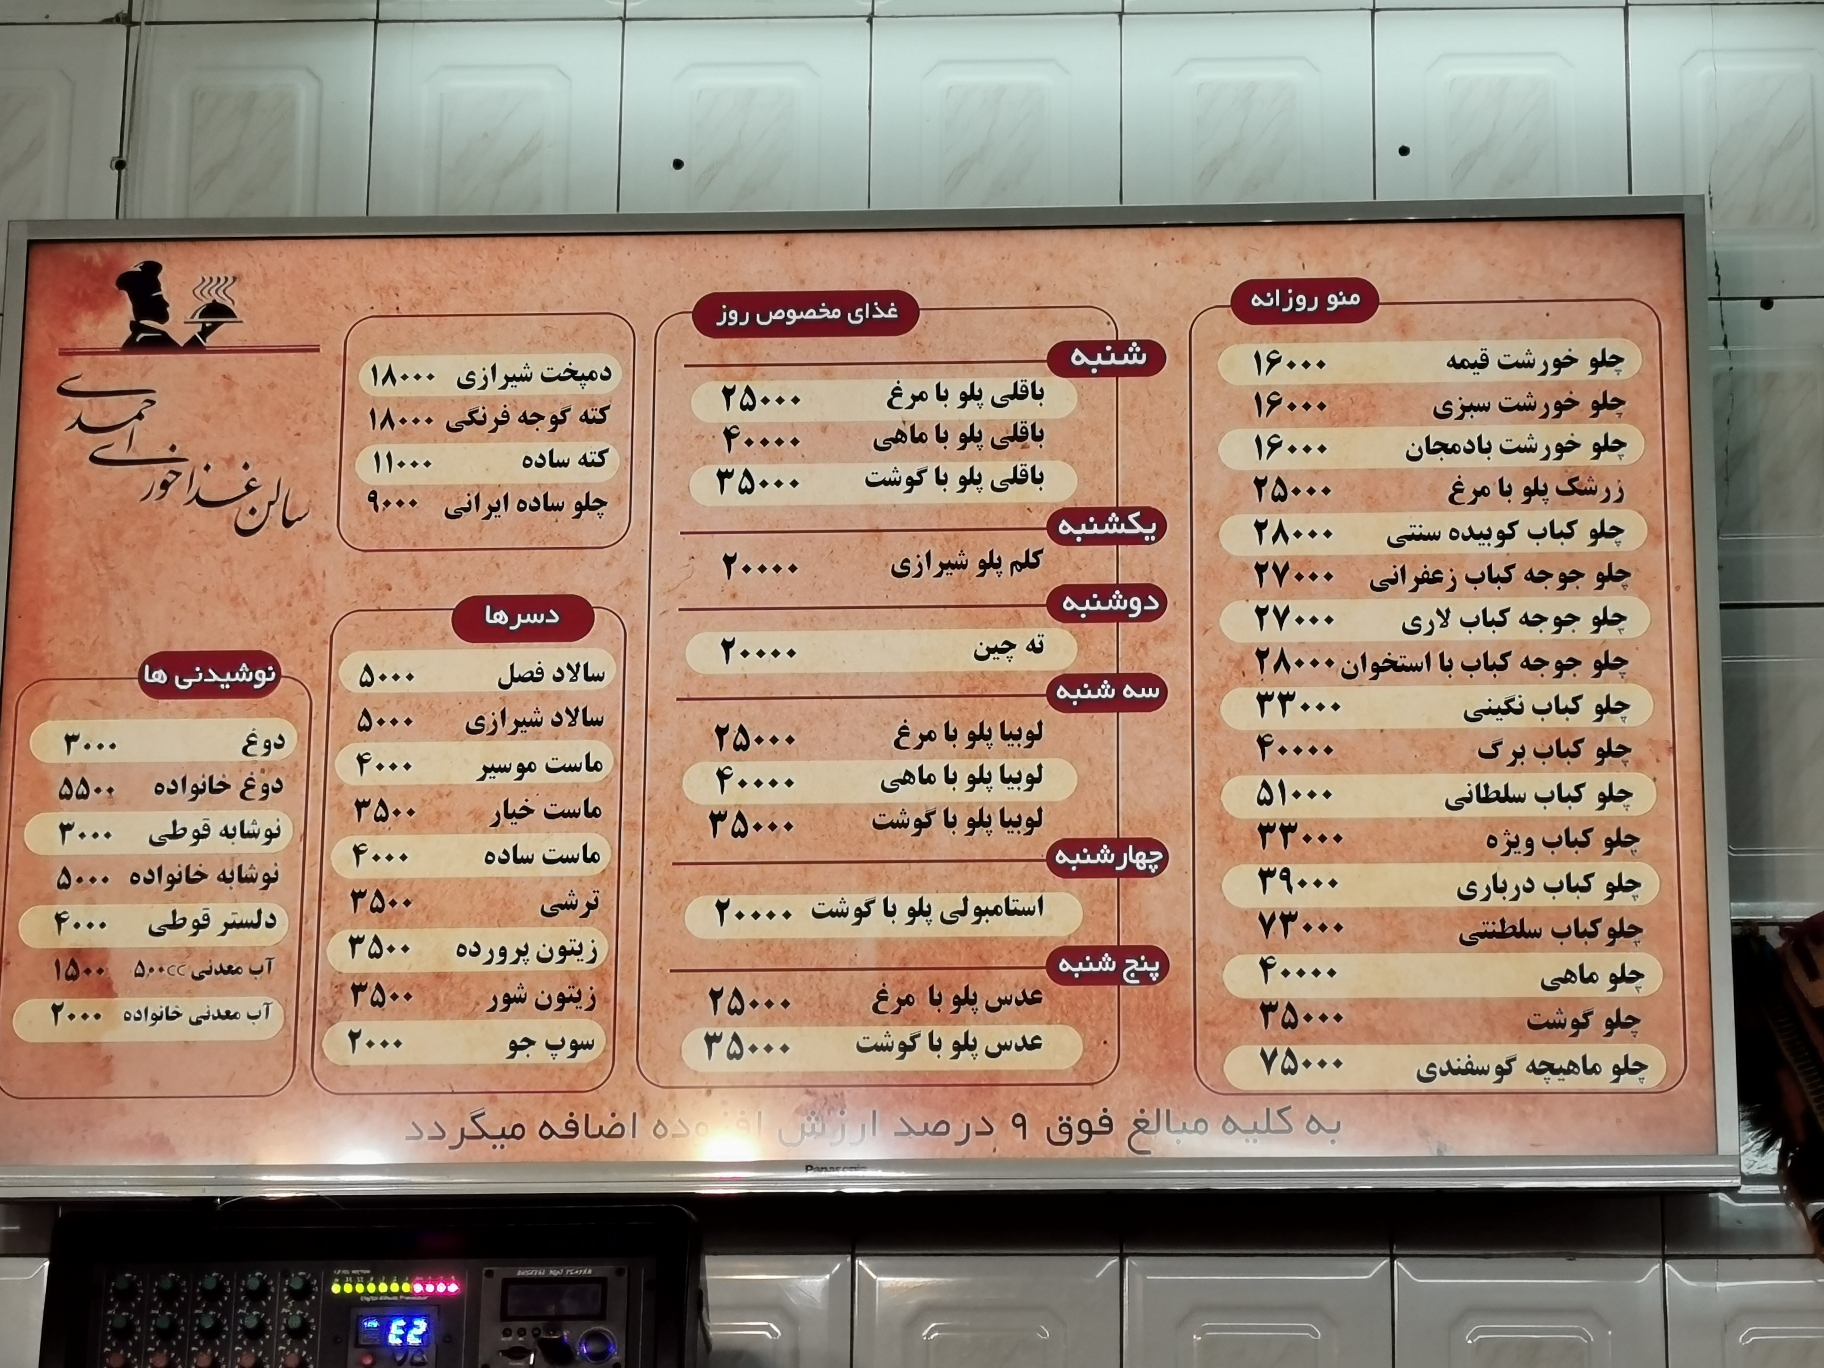 منو روزانه
چلو خورشت قیمه ۱۶۰۰۰
چلو خورشت سبزی ۱۶۰۰۰
چلو خورشت بادمجان ۱۶۰۰۰
زرشک پلو با مرغ ۲۵۰۰۰
چلو کباب کوبیده سنتی ۲۸۰۰۰
چلو جوجه کباب زعفرانی ۲۷۰۰۰
چلو جوجه کباب لاری ۲۷۰۰۰
چلو جوجه کباب با استخوان ۲۸۰۰۰
چلو کباب نگینی ۳۳۰۰۰
چلو کباب برگ ۴۰۰۰۰
چلو کباب سلطانی ۵۱۰۰۰
چلو کباب ویژه ۳۳۰۰۰
چلو کباب درباری ۳۹۰۰۰
چلوکباب سلطنتی ۷۳۰۰۰
چلو ماهی ۴۰۰۰۰
چلو گوشت ۳۵۰۰۰
چلو ماهیچه گوسفندی ۷۵۰۰۰
غذای مخصوص روز
شنبه
باقلی پلو با مرغ ۲۵۰۰۰
باقلی پلو با ماهی ۴۰۰۰۰
باقلی پلو با گوشت ۳۵۰۰۰
یکشنبه
کلم پلو شیرازی ۲۰۰۰۰
دوشنبه
ته چین ۲۰۰۰۰
سه شنبه
لوبیا پلو با مرغ ۲۵۰۰۰
لوبیا پلو با ماهی ۴۰۰۰۰
لوبیا پلو با گوشت ۳۵۰۰۰
چهارشنبه
استامبولی پلو با گوشت ۲۰۰۰۰
پنج شنبه
عدس پلو با مرغ ۲۵۰۰۰
عدس پلو با گوشت ۳۵۰۰۰
دمپخت شیرازی ۱۸۰۰۰
کته گوجه فرنگی ۱۸۰۰۰
کته ساده ۱۱۰۰۰
چلو ساده ایرانی ۹۰۰۰
دسرها
سالاد فصل ۵۰۰۰
سالاد شیرازی ۵۰۰۰
ماست موسیر ۴۰۰۰
ماست خیار ۳۵۰۰
ماست ساده ۴۰۰۰
ترشی ۳۵۰۰
زیتون پرورده ۳۵۰۰
زیتون شور ۳۵۰۰
سوپ جو ۲۰۰۰
سالن غذاخوری احمدی
نوشیدنی ها
دوغ ۳۰۰۰
دوغ خانواده ۵۵۰۰
نوشابه قوطی ۳۰۰۰
نوشابه خانواده ۵۰۰۰
دلستر قوطی ۴۰۰۰
آب معدنی ۵۰۰cc ۱۵۰۰
آب معدنی خانواده ۲۰۰۰
به کلیه مبالغ فوق ۹ درصد ارزش افزوده اضافه میگردد
Panasonic